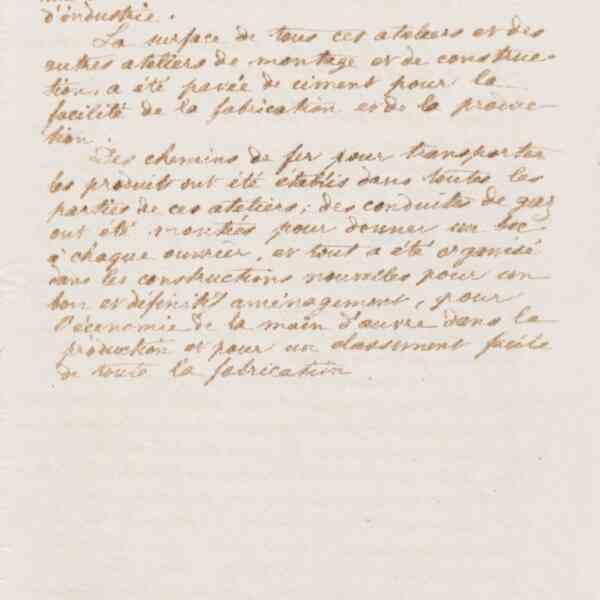 d'industrie.
La surface de tous ces ateliers et des
autres ateliers de montage et de construc-
tion, a été pavée de ciment pour la
facilité de la fabrication et de la produc-
tion.
Des chemins de fer pour transporter
les produits ont été établis dans toutes les
parties de ces ateliers; des conduites de gaz
ont été montées pour donner un bec
à chaque ouvrier, et tout a été organisé
dans les constructions nouvelles pour un
bon et définitif aménagement, pour
l'économie de la main d'œuvre dans la
production et pour un classement facile
de toute la fabrication